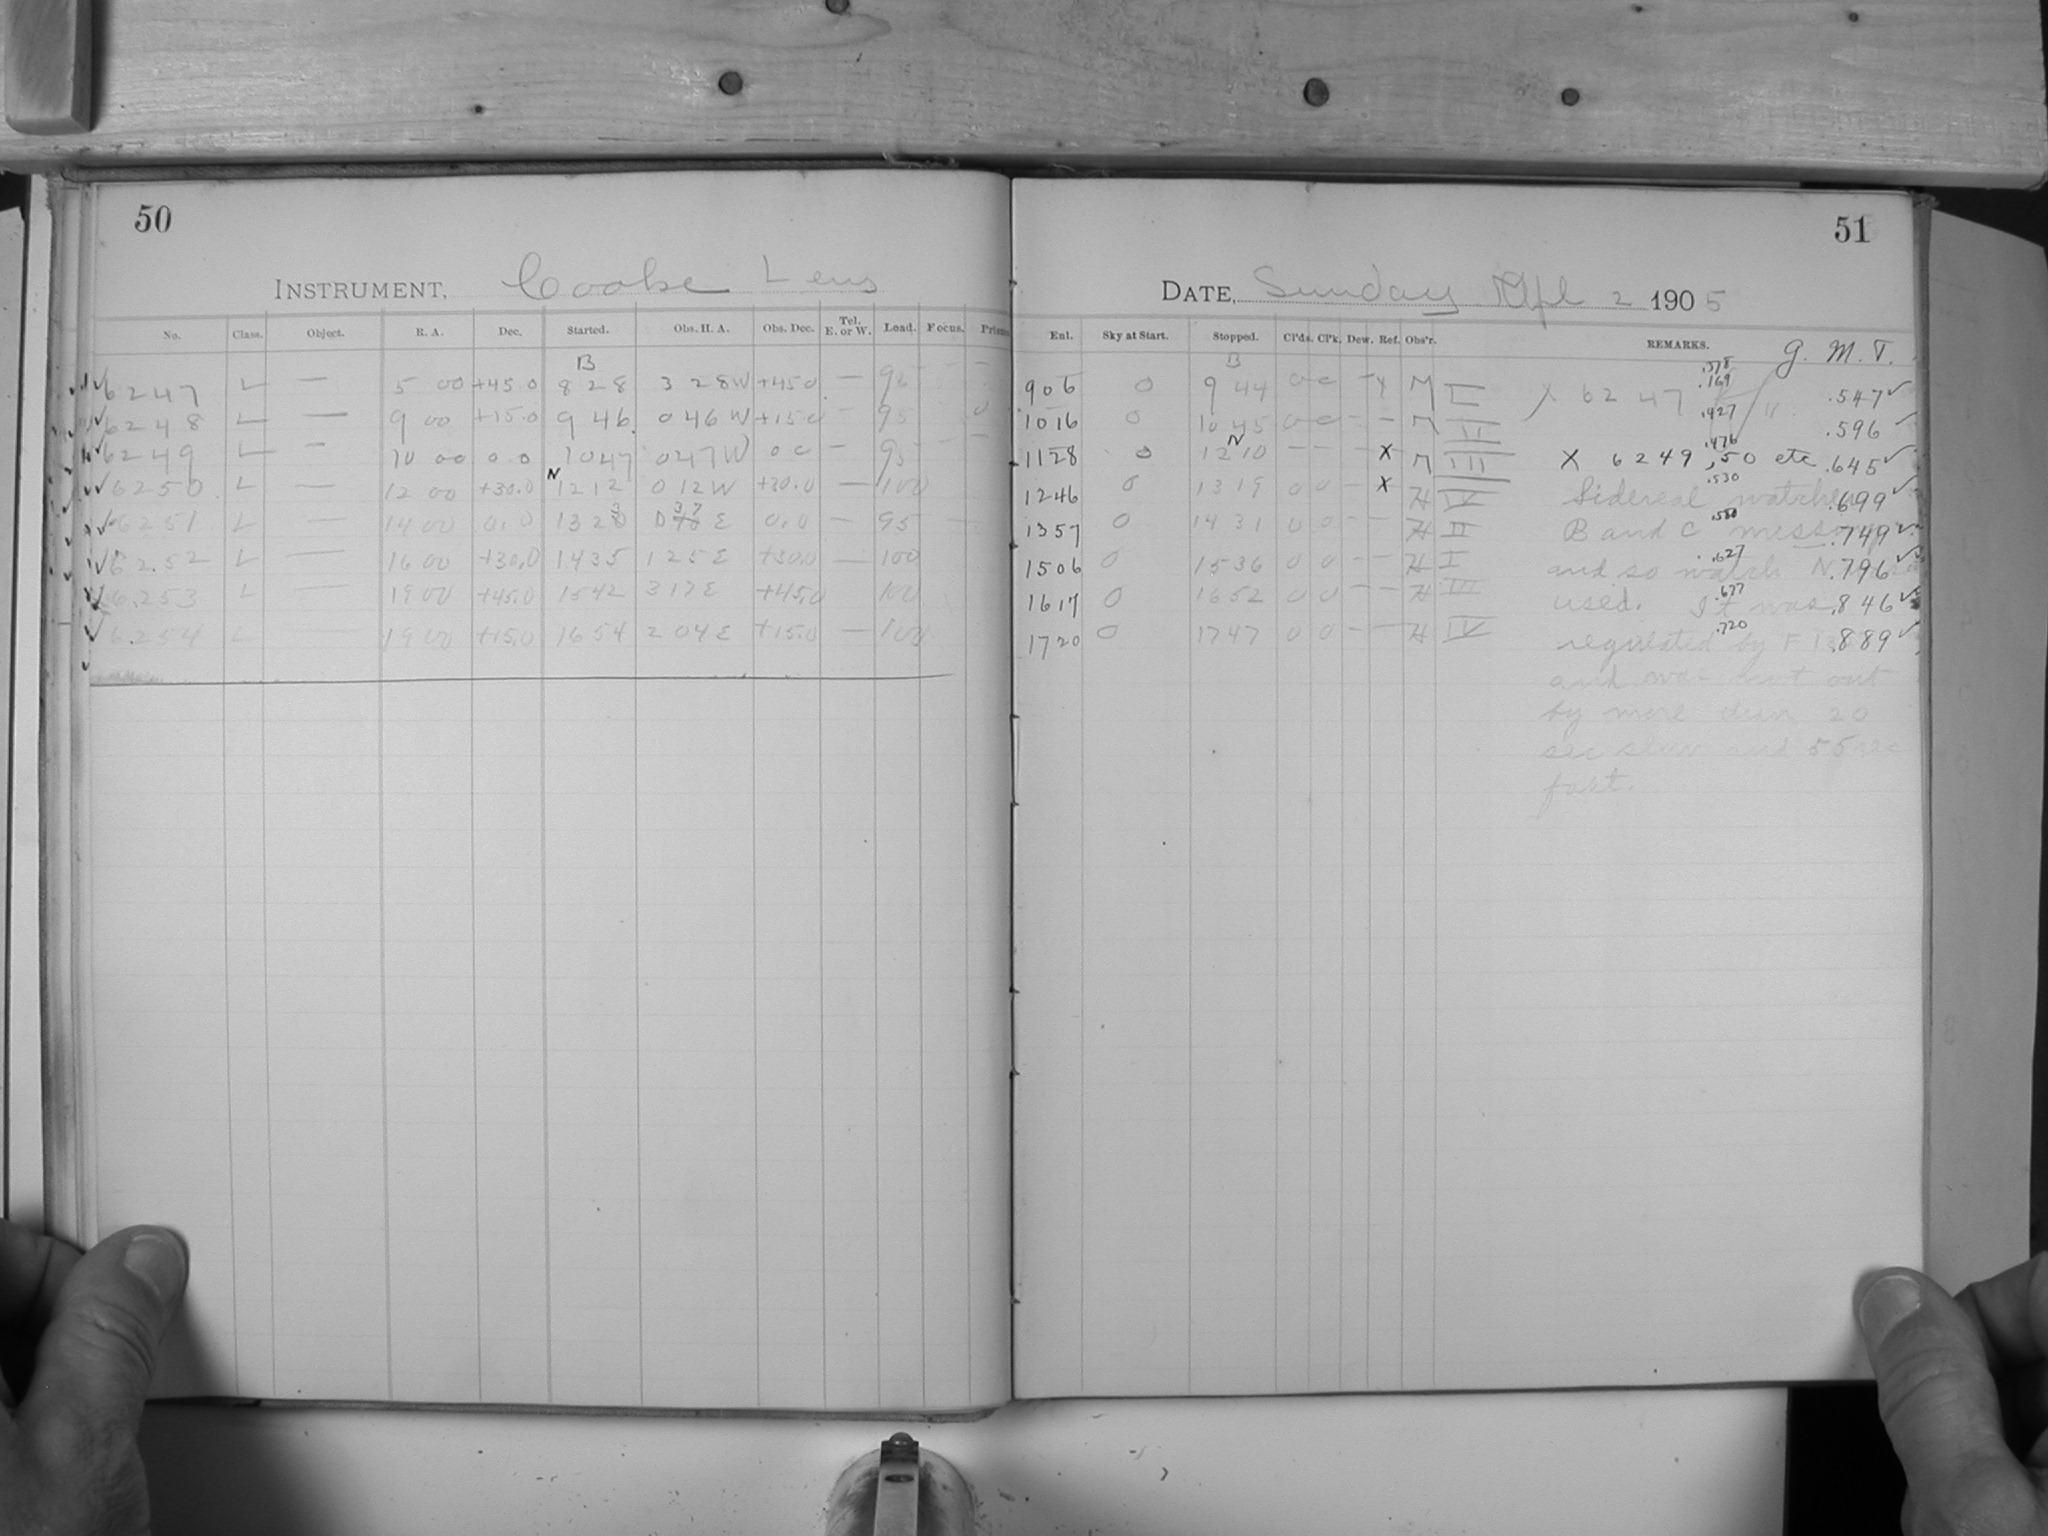 50
INSTRUMENT, Cooke Lens
No. Class. Object. R. A. Dec. Started. Obs. H. A. Obs. Dec. Tel. E. or W. Load. Focus.
B
6247 L — 5 00 +45.0 8 28 3 28 W +45.0 —
6248 L — 9 00 +15.0 9 46 0 46 W +15.0 — 95
6249 L — 10 00 0.0 10 47 0 47 W 0 0 — 95
N
6250 L — 12 00 +30.0 12 12 0 12 W +30.0 — 100
6251 L — 14 00 0.0 0.0 — 95
6252 L — 16 00 +30.0 14 35 1 25 E +30.0 — 100
6253 L — 19 00 +45.0 15 42 3 17 E +45.0 100
6254 L — 19 00 +15.0 16 54 2 04 E +15.0 — 100
51
DATE, Sunday Apl 2 1905
Enl. Sky at Start. Stopped. Cl'ds. Cl'k. Dew. Ref. Obs'r. REMARKS. G. M. T.
B
906 0 9 44 M I X 6247 .547 ✓
1016 0 10 45 M II .427 .596 ✓
N
1128 0 12 10 — — — X M III X 6249, 50 etc .476 .645 ✓
1246 0 13 19 0 0 — X H IV Sidereal watches .530 .699 ✓
1357 0 14 31 0 0 — — H II B and C .580 .749 ✓
1506 0 15 36 0 0 — — H I and so watch N .627 .796 ✓
1617 0 16 52 0 0 — — H III used. It was .677 .846 ✓
1720 0 17 47 0 0 — — H IV regulated by .720 .889 ✓
and was not out
by more than 20
sec slow and 55 sec
fast.